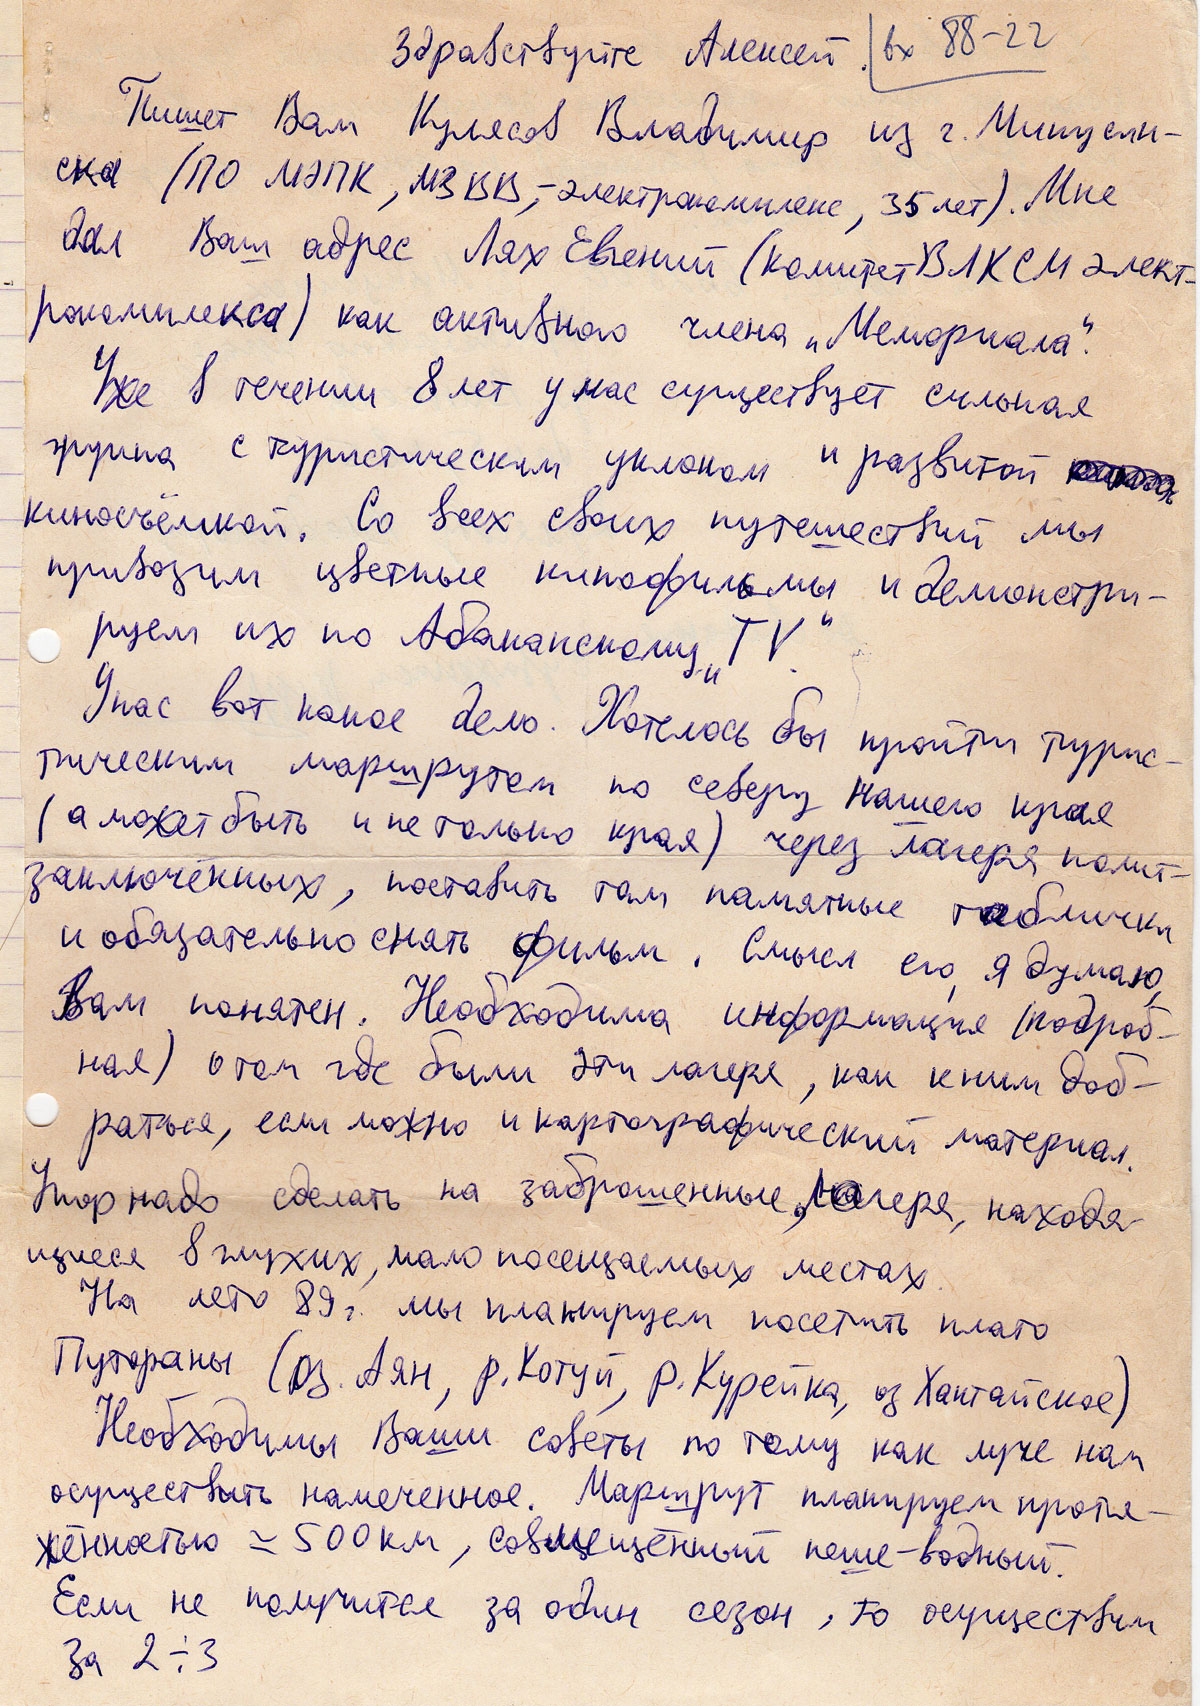 Здравствуйте Алексей. вх 88-22
Пишет Вам Кулясов Владимир из г. Минусин-
ска (ПО МЭПК, МЗВВ, - электрокомплекс, 35 лет). Мне
дал Ваш адрес Лях Евгений (комитет ВЛКСМ элект-
рокомплекса) как активного члена „Мемориала".
Уже в течении 8 лет у нас существует сильная
группа с туристическим уклоном и развитой
киносъёмкой. Со всех своих путешествий мы
привозим цветные кинофильмы и демонстри-
руем их по Абаканскому „TV."
У нас вот какое дело. Хотелось бы пройти турис-
тическим маршрутом по северу нашего края
(а может быть и не только края) через лагеря полит-
заключённых, поставить там памятные таблички
и обязательно снять фильм. Смысл его, я думаю,
Вам понятен. Необходима информация (подроб-
ная) о том где были эти лагеря, как к ним доб-
раться, если можно и картографический материал.
Упор надо сделать на заброшенные, лагеря, находя-
щиеся в глухих, мало посещаемых местах.
На лето 89 г. мы планируем посетить плато
Путораны (оз. Аян, р. Котуй, р. Курейка, оз Хантайское)
Необходимы Ваши советы по тому как луче нам
осуществить намеченное. Маршрут планируем протя-
жённостью ≃ 500 км, совмещённый пеше-водный.
Если не получится за один сезон, то осуществим
за 2÷3